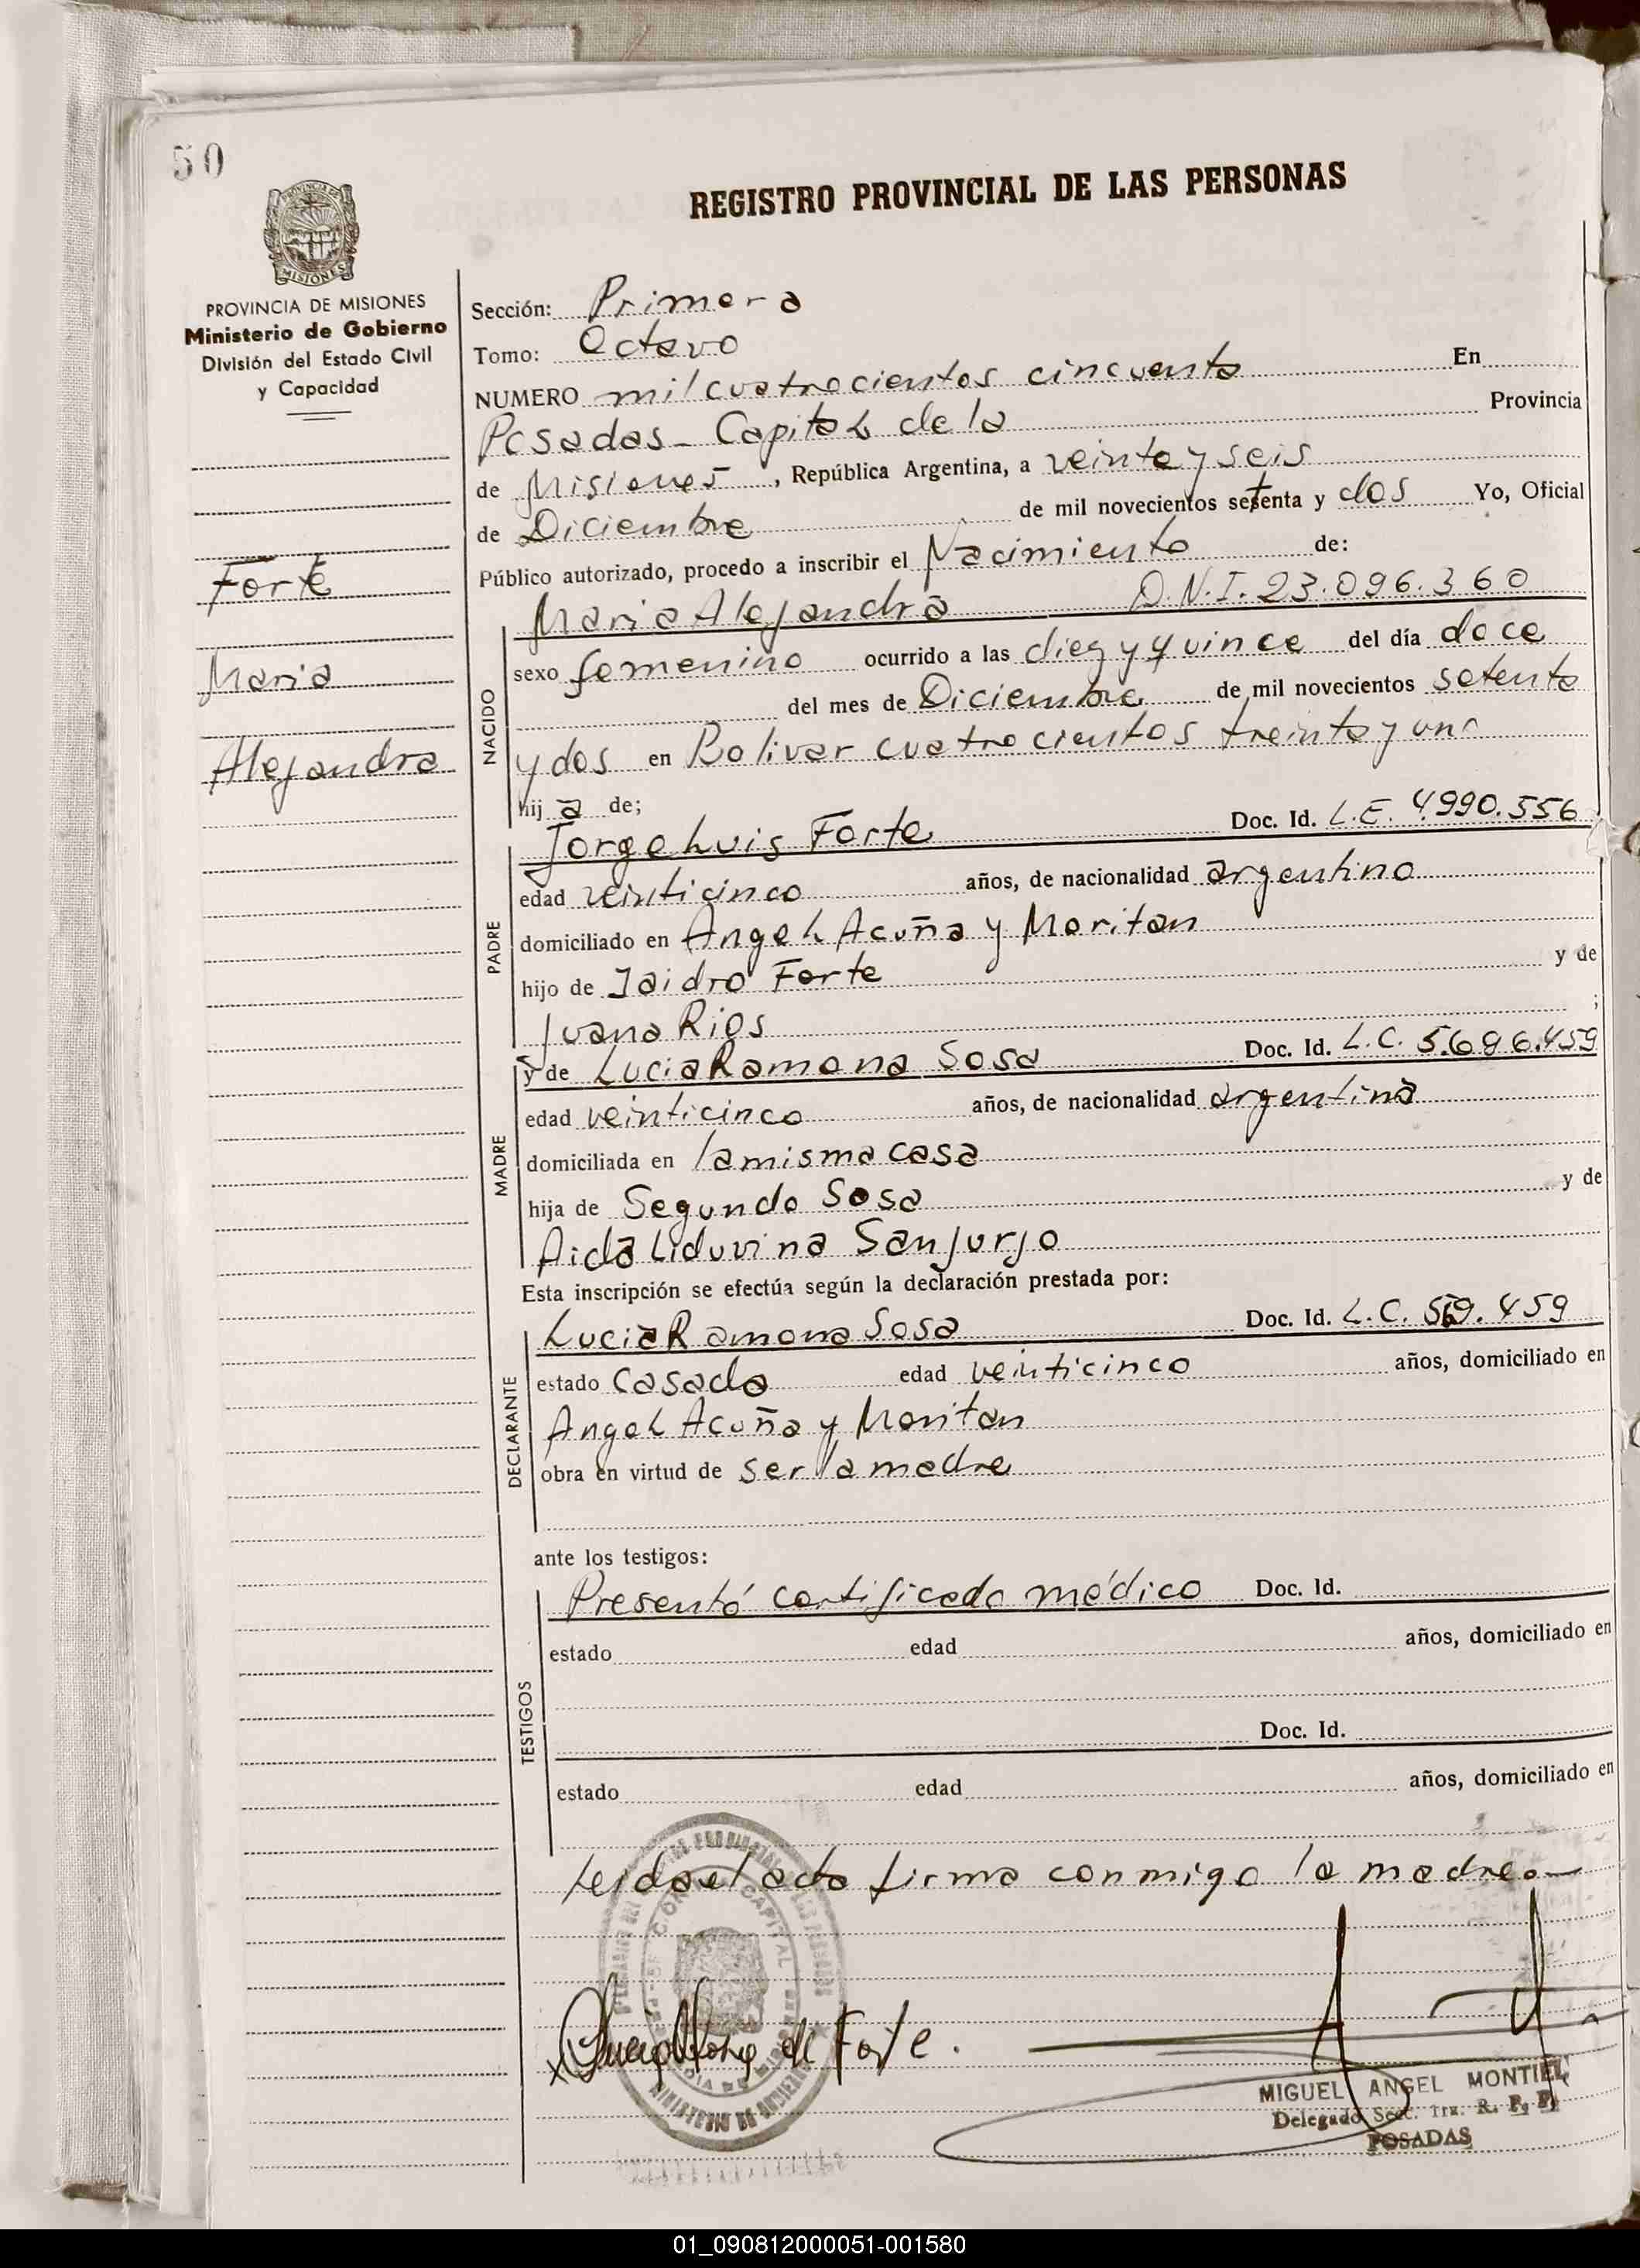 50
REGISTRO PROVINCIAL DE LAS PERSONAS
MISIONES
PROVINCIA DE MISIONES
Ministerio de Gobierno
División del Estado Civil
y Capacidad
Forte
Maria
Alejandra
Sección: Primera
Tomo: Octavo
NUMERO mil cuatrocientos cincuenta En
Posadas - Capital de la Provincia
de Misiones, República Argentina, a veinte y seis
de Diciembre de mil novecientos setenta y dos Yo, Oficial
Público autorizado, procedo a inscribir el Nacimiento de:
Maria Alejandra D.N.I. 23.096.360
NACIDO
sexo femenino ocurrido a las diez y quince del día doce
del mes de Diciembre de mil novecientos setenta
y dos en Bolivar cuatrocientos treinta y uno
hij a de;
PADRE
Jorge Luis Forte Doc. Id. L.E. 4.990.556
edad veinticinco años, de nacionalidad argentino
domiciliado en Angel Acuña y Moritan
hijo de Isidro Forte y de
Juana Rios ;
MADRE
y de Lucia Ramona Sosa Doc. Id. L.C. 5.686.459
edad veinticinco años, de nacionalidad argentina
domiciliada en la misma casa
hija de Segundo Sosa y de
Aida Liduvina Sanjurjo
Esta inscripción se efectúa según la declaración prestada por:
DECLARANTE
Lucia Ramona Sosa Doc. Id. L.C. 459
estado casada edad veinticinco años, domiciliado en
Angel Acuña y Moritan
obra en virtud de ser la madre
ante los testigos:
TESTIGOS
Presentó certificado médico Doc. Id.
estado edad años, domiciliado en
Doc. Id.
estado edad años, domiciliado en
Leida el acta firma conmigo la madre.—
de Forte.
MIGUEL ANGEL MONTIEL
Delegado Secc. 1ra. R. P. P.
POSADAS
01_090812000051-001580